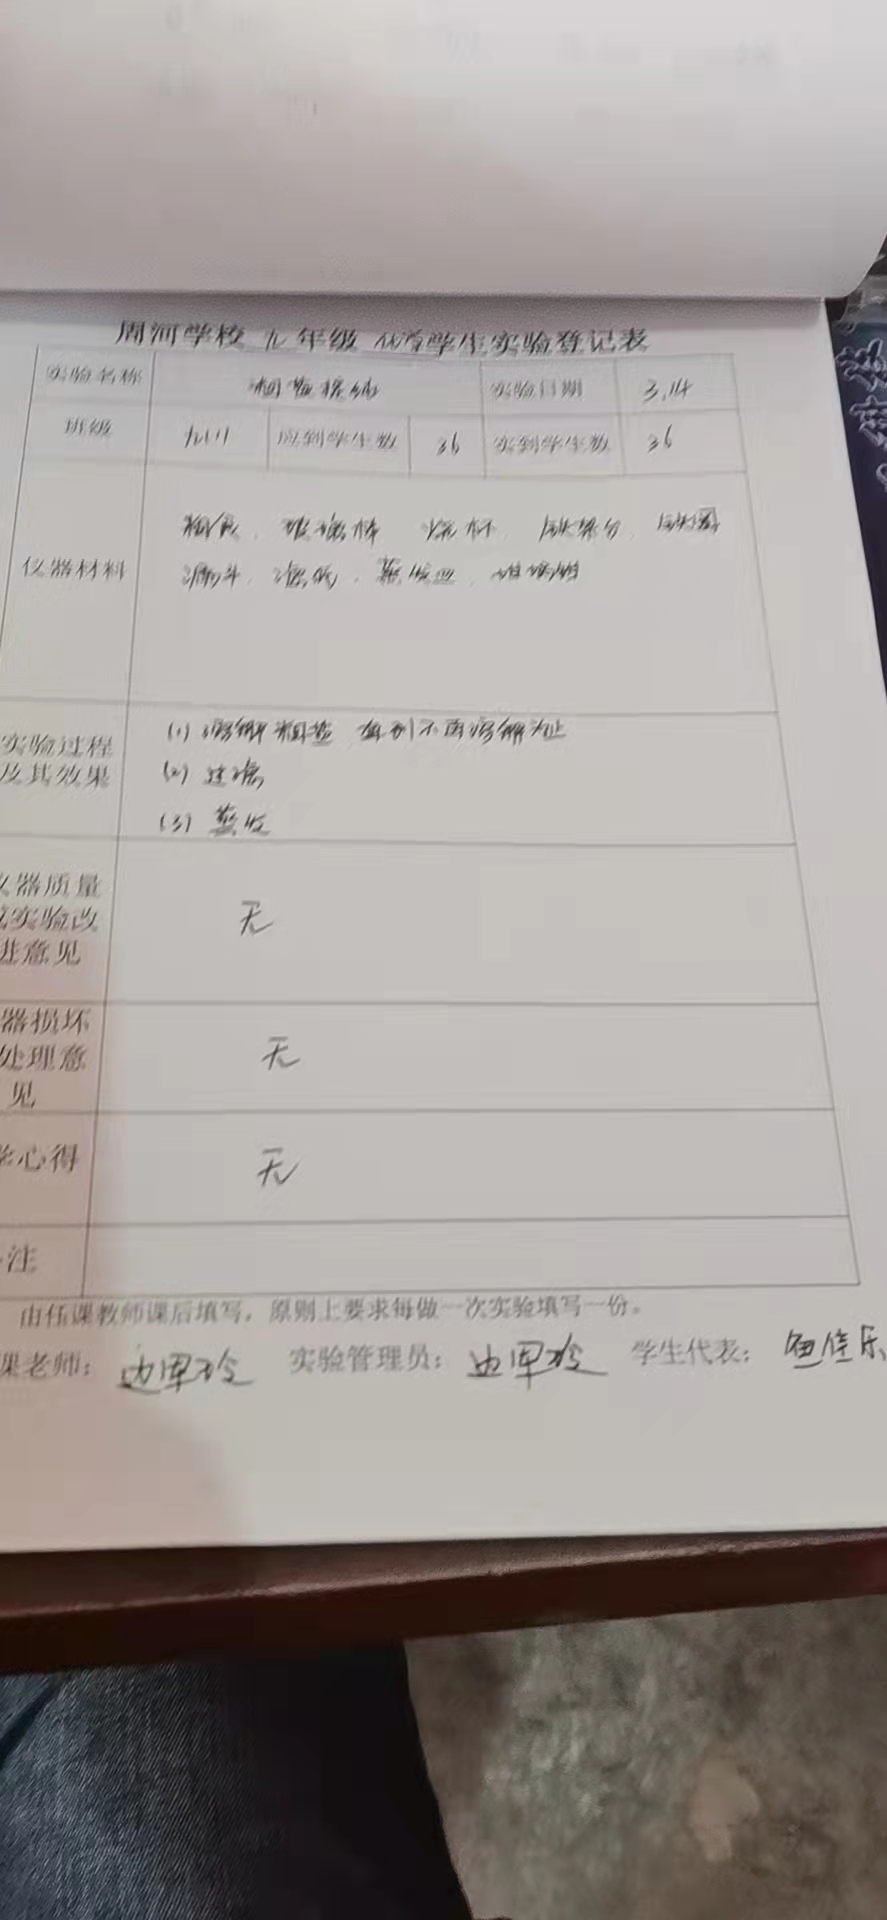 周河学校 九 年级 化学 学生实验登记表
实验名称 粗盐提纯 实验日期 3.14
班级 九(1) 应到学生数 36 实到学生数 36
仪器材料
粗盐、玻璃棒 烧杯、铁架台、铁圈
漏斗、滤纸、蒸发皿、坩埚钳
实验过程
及其效果
(1) 溶解粗盐 直到不再溶解为止
(2) 过滤
(3) 蒸发
器质量
实验改
进意见
无
器损坏
处理意
见
无
心得
无
注
由任课教师课后填写，原则上要求每做一次实验填写一份。
课老师： 实验管理员： 学生代表：